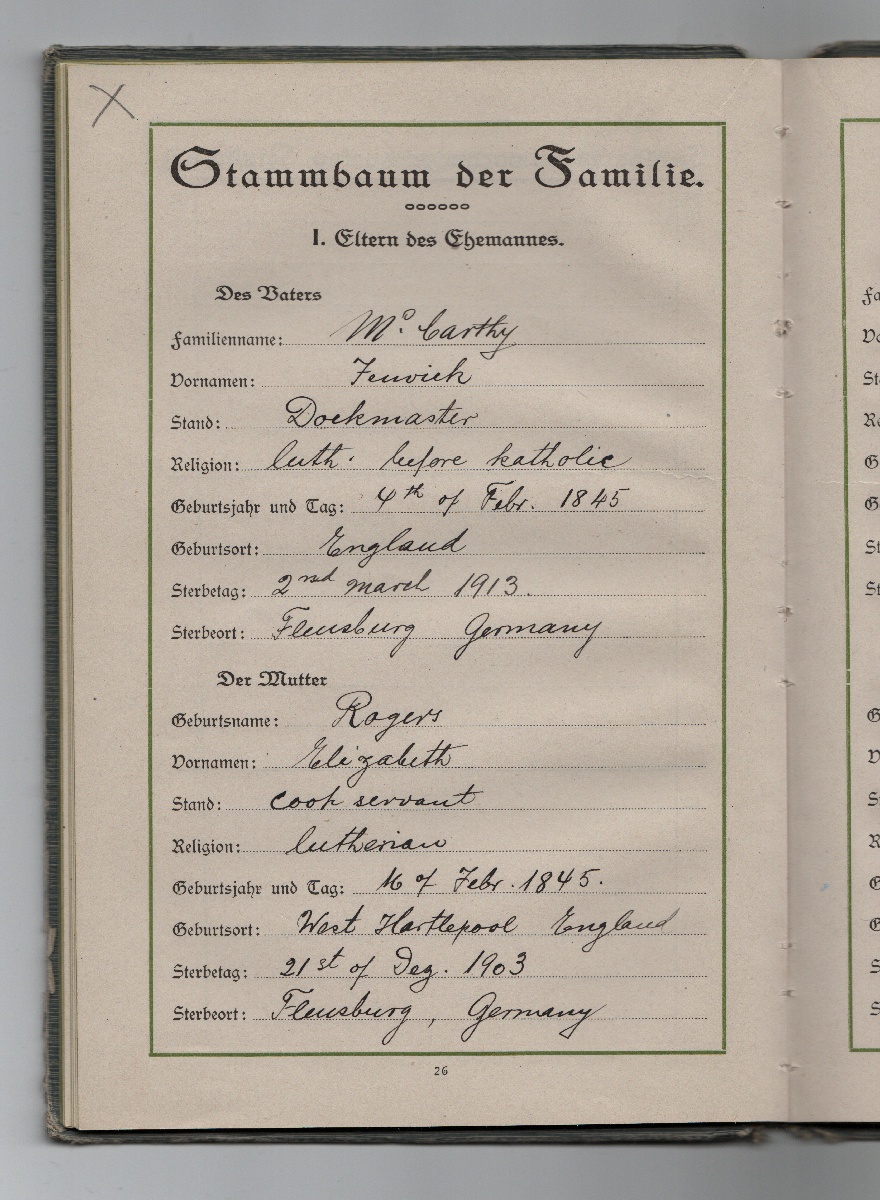 X
Stammbaum der Familie.
I. Eltern des Ehemannes.
Des Vaters
Familienname: Mc. Carthy
Vornamen: Fenwick
Stand: Dockmaster
Religion: luth. before katholic
Geburtsjahr und Tag: 4th of Febr. 1845
Geburtsort: England
Sterbetag: 2nd march 1913.
Sterbeort: Flensburg Germany
Der Mutter
Geburtsname: Rogers
Vornamen: Elizabeth
Stand: cook servant
Religion: lutherian
Geburtsjahr und Tag: 16 of Febr. 1845.
Geburtsort: West Hartlepool England
Sterbetag: 21st of Dez. 1903
Sterbeort: Flensburg, Germany
26